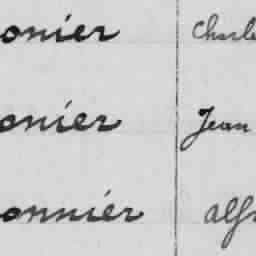 onier Charle
onier Jean
onnier Alfr